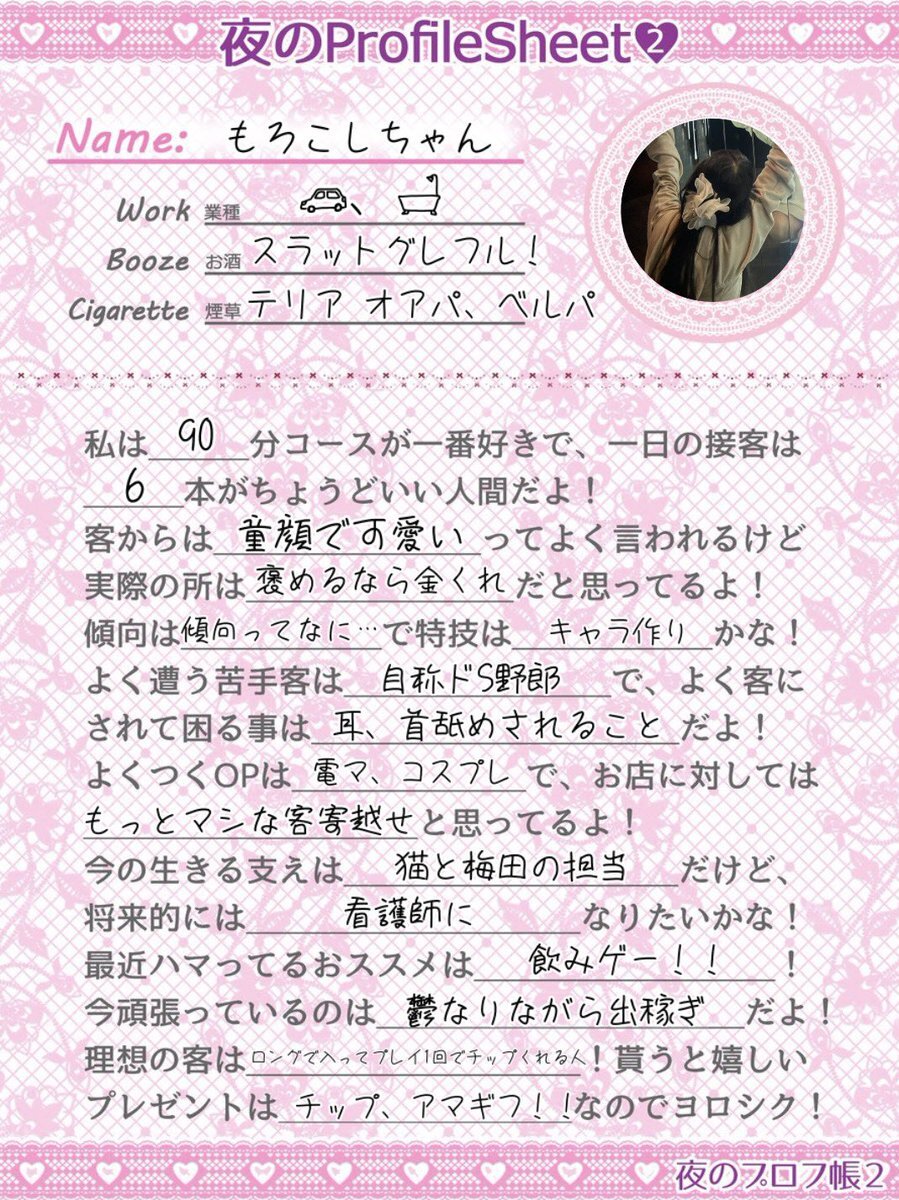 夜のProfileSheet2
Name: もろこしちゃん
Work 業種 、
Booze お酒 スラットグレフル！
Cigarette 煙草 テリア オアパ、ベルパ
私は90分コースが一番好きで、一日の接客は
6本がちょうどいい人間だよ！
客からは童顔で可愛いってよく言われるけど
実際の所は褒めるなら金くれだと思ってるよ！
傾向は傾向ってなに…で特技はキャラ作りかな！
よく遭う苦手客は自称ドS野郎で、よく客に
されて困る事は耳、首舐めされることだよ！
よくつくOPは電マ、コスプレで、お店に対しては
もっとマシな客寄越せと思ってるよ！
今の生きる支えは猫と梅田の担当だけど、
将来的には看護師になりたいかな！
最近ハマってるおススメは飲みゲー！！！
今頑張っているのは鬱なりながら出稼ぎだよ！
理想の客はロングで入ってプレイ1回でチップくれる人！貰うと嬉しい
プレゼントはチップ、アマギフ！！なのでヨロシク！
夜のプロフ帳2